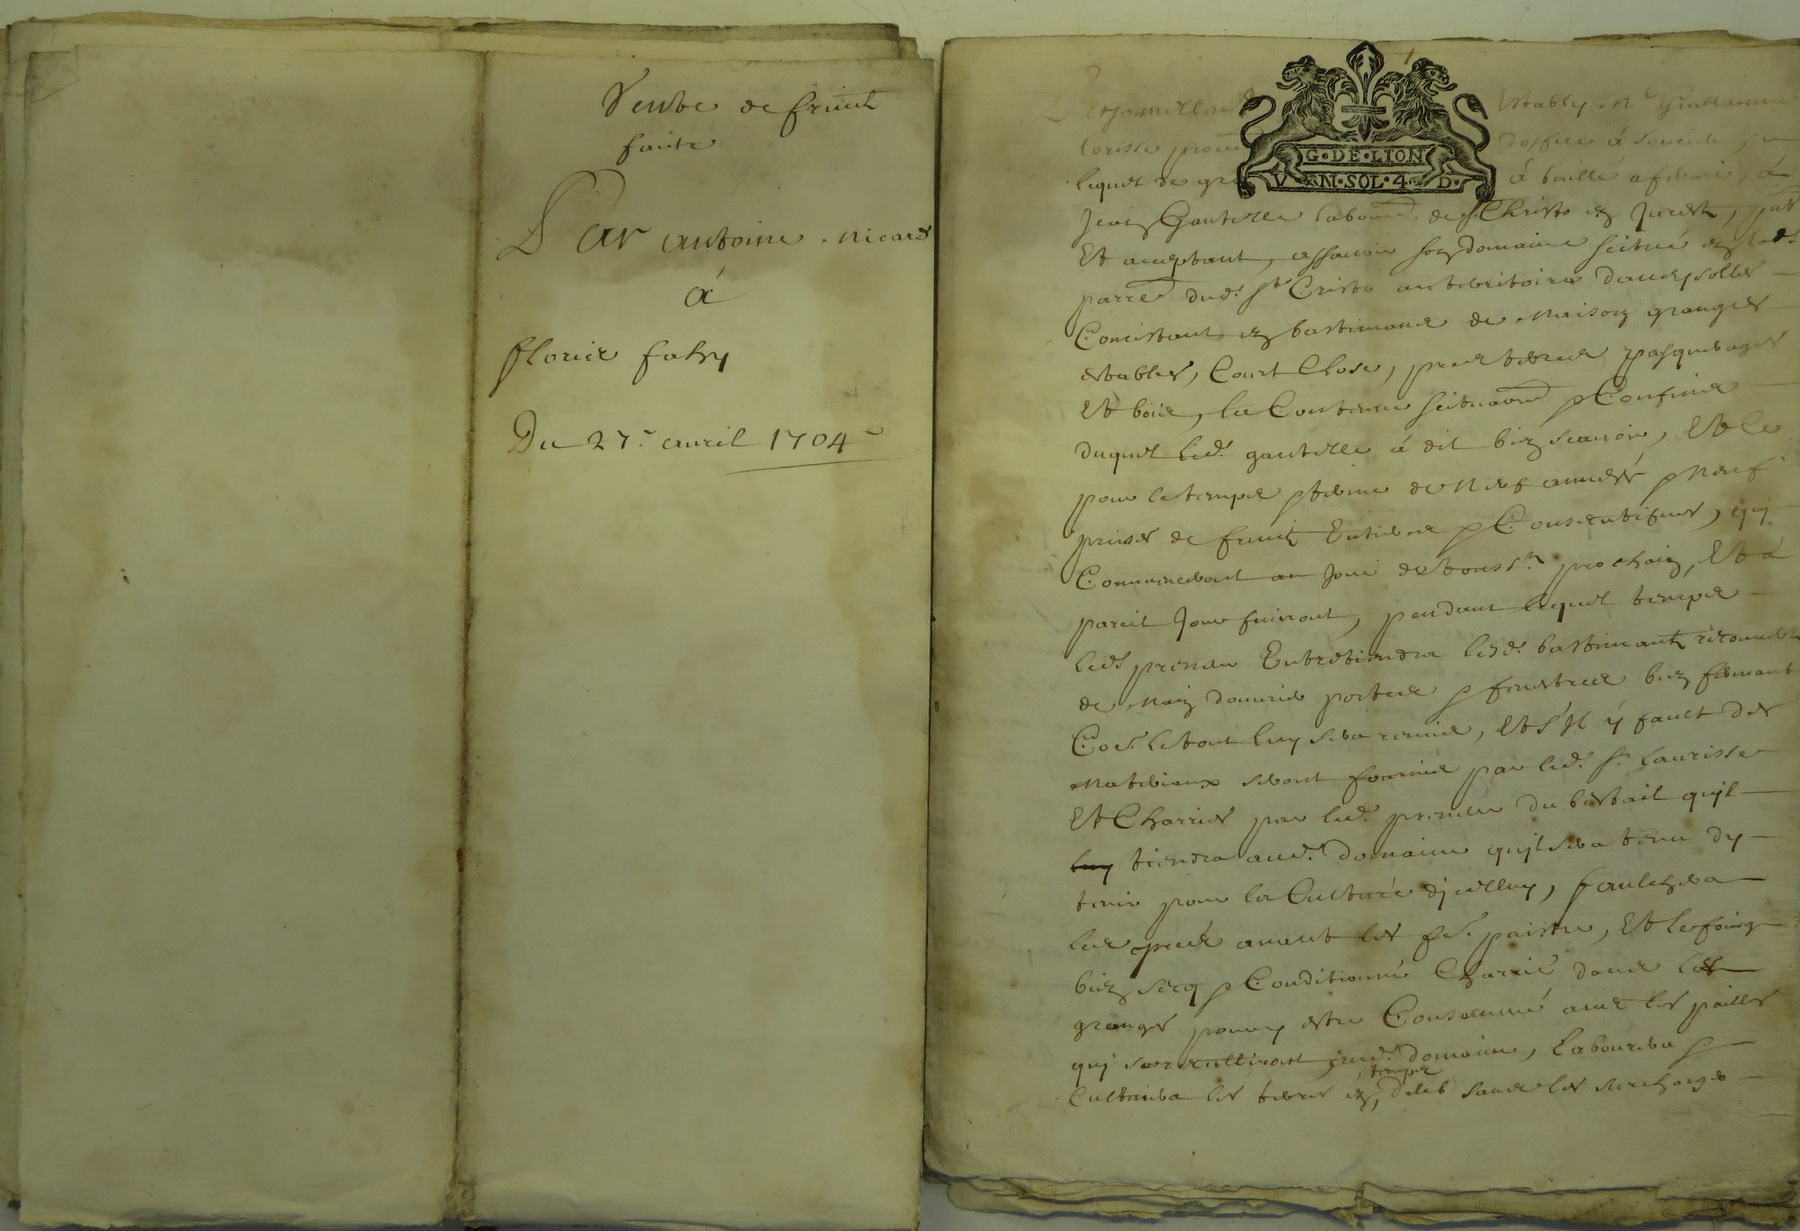 Vente de fruict
faite
Par antoine nicard
à
florie fahy
Du 27e avril 1704
Establý Me Guillaume
lorisse d'office à
lequel de à baillé a ferme, à
Jean Gantille labour de St Christo en Jarest, pnt
Et acceptant, assavoir son domaine scitué en lad.
parre dud. St Cristo au territoire
Concistant en bastimans de Maison granges
estables, Court Close, prés terres pasquerages
Et bois, la Contenue scituaon & Confins
duquel led. gantille à dit bien scavoir, Et ce
pour le temps & terme de Neuf années & Neuf
prises de fruits Entieres & Consecutifves, quj
Commenceront au Jour de touss.ts prochain, Et à
pareil Jour finiront, pendant lequel temps
led. preneur Entretiendra lesd. bastimants recouverts
de Main d'ouvrier portes & fenestres bien fermant
Coe. le tout luy sera remis, Et s'Il ÿ fault des
Materiaux seront fournis par led. Sr. laurisse
Et Charriés par led. preneur du bestail qu'jl
tiendra aud. domaine qu'jl sera tenu dy
tenir pour la Culture djcelluy, fauchera
les prés avant les fe. paistre, Et le foing
bien secq & Conditionné Charrié dans les
granges pour y estre Consommé avec les pailles
quj se reculliront aud. domaine, labourera &
Cultivera les terres en temps deub sans les surcharger
G·DE·LION
VN·SOL·4·D·